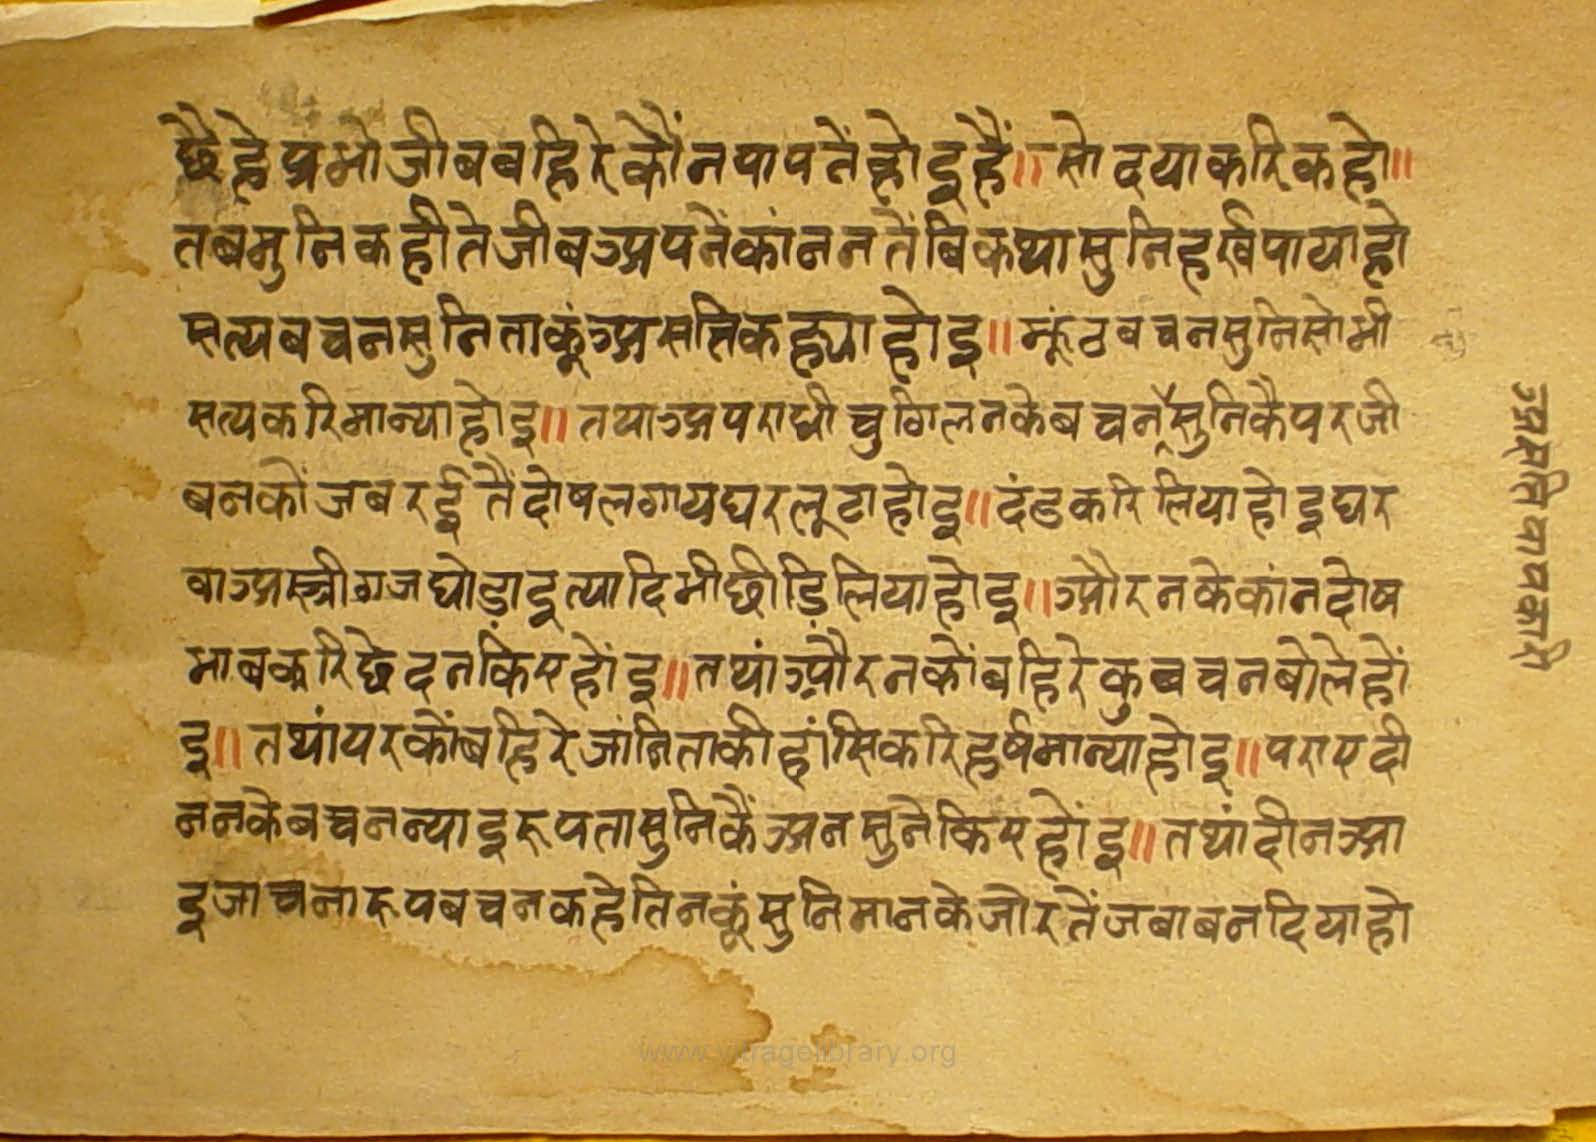 छैहेप्रभोजीबबहिरेकौंनपापतेंहोइहैं॥सोदयाकरिकहो॥
तबमुनिकहीतेजीबअपनेंकांननतेंबिकथासुनिहर्खपायाहो
सत्यबचनसुनिताकूंअसत्तिकह्याहोइ॥झूंठबचनसुनिसोभी
सत्यकरिमान्याहोइ॥तथाअपराधीचुगिलनकेबचनसुनिकैपरजी
बनकोंजबरईतैंदोषलगायघरलूटाहोइ॥दंडकरिलियाहोइघर
वाअस्त्रीगजघोड़ाइत्यादिभीछीड़िलियाहोइ॥औरनकेकांनदोष
भाबकरिछेदनकिएहोंइ॥तथांऔरनकोंबहिरेकुबचनबोलेहों
इ॥तथांपरकोंबहिरेजांनिताकीहांसिकरिहर्षमान्याहोइ॥पराएदी
ननकेबचनन्याइरूपतासुनिकैंअनसुनेकिएहोंइ॥तथांदीनआ
इजाचनारूपबचनकहेतिनकूंसुनिमानकेजोरतेंजबाबनदियाहो
www.vitragelibrary.org